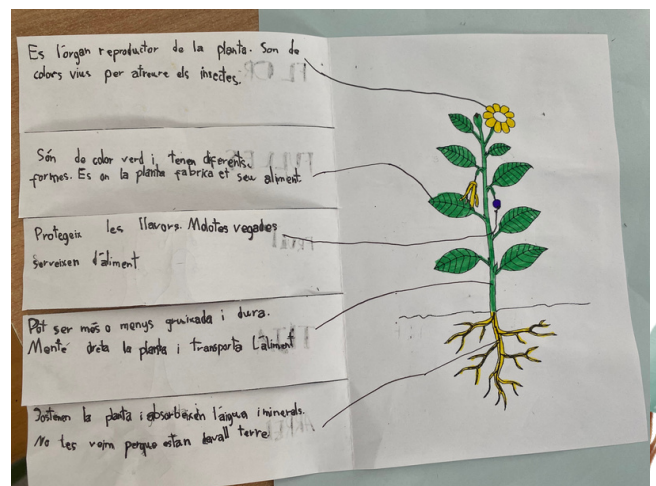 Es l'òrgan reproductor de la planta. Son de
colors vius per atreure els insectes.
Són de color verd i tenen diferents
formes. Es on la planta fabrica et seu aliment
Protegeix les llavors. Moltes vegades
serveixen d'aliment
Pot ser més o menys gruixada i dura.
Manté dreta la planta i transporta l'aliment
Sostenen la planta i absorbeixen l'aigua i minerals.
No les veim perque estan davall terre